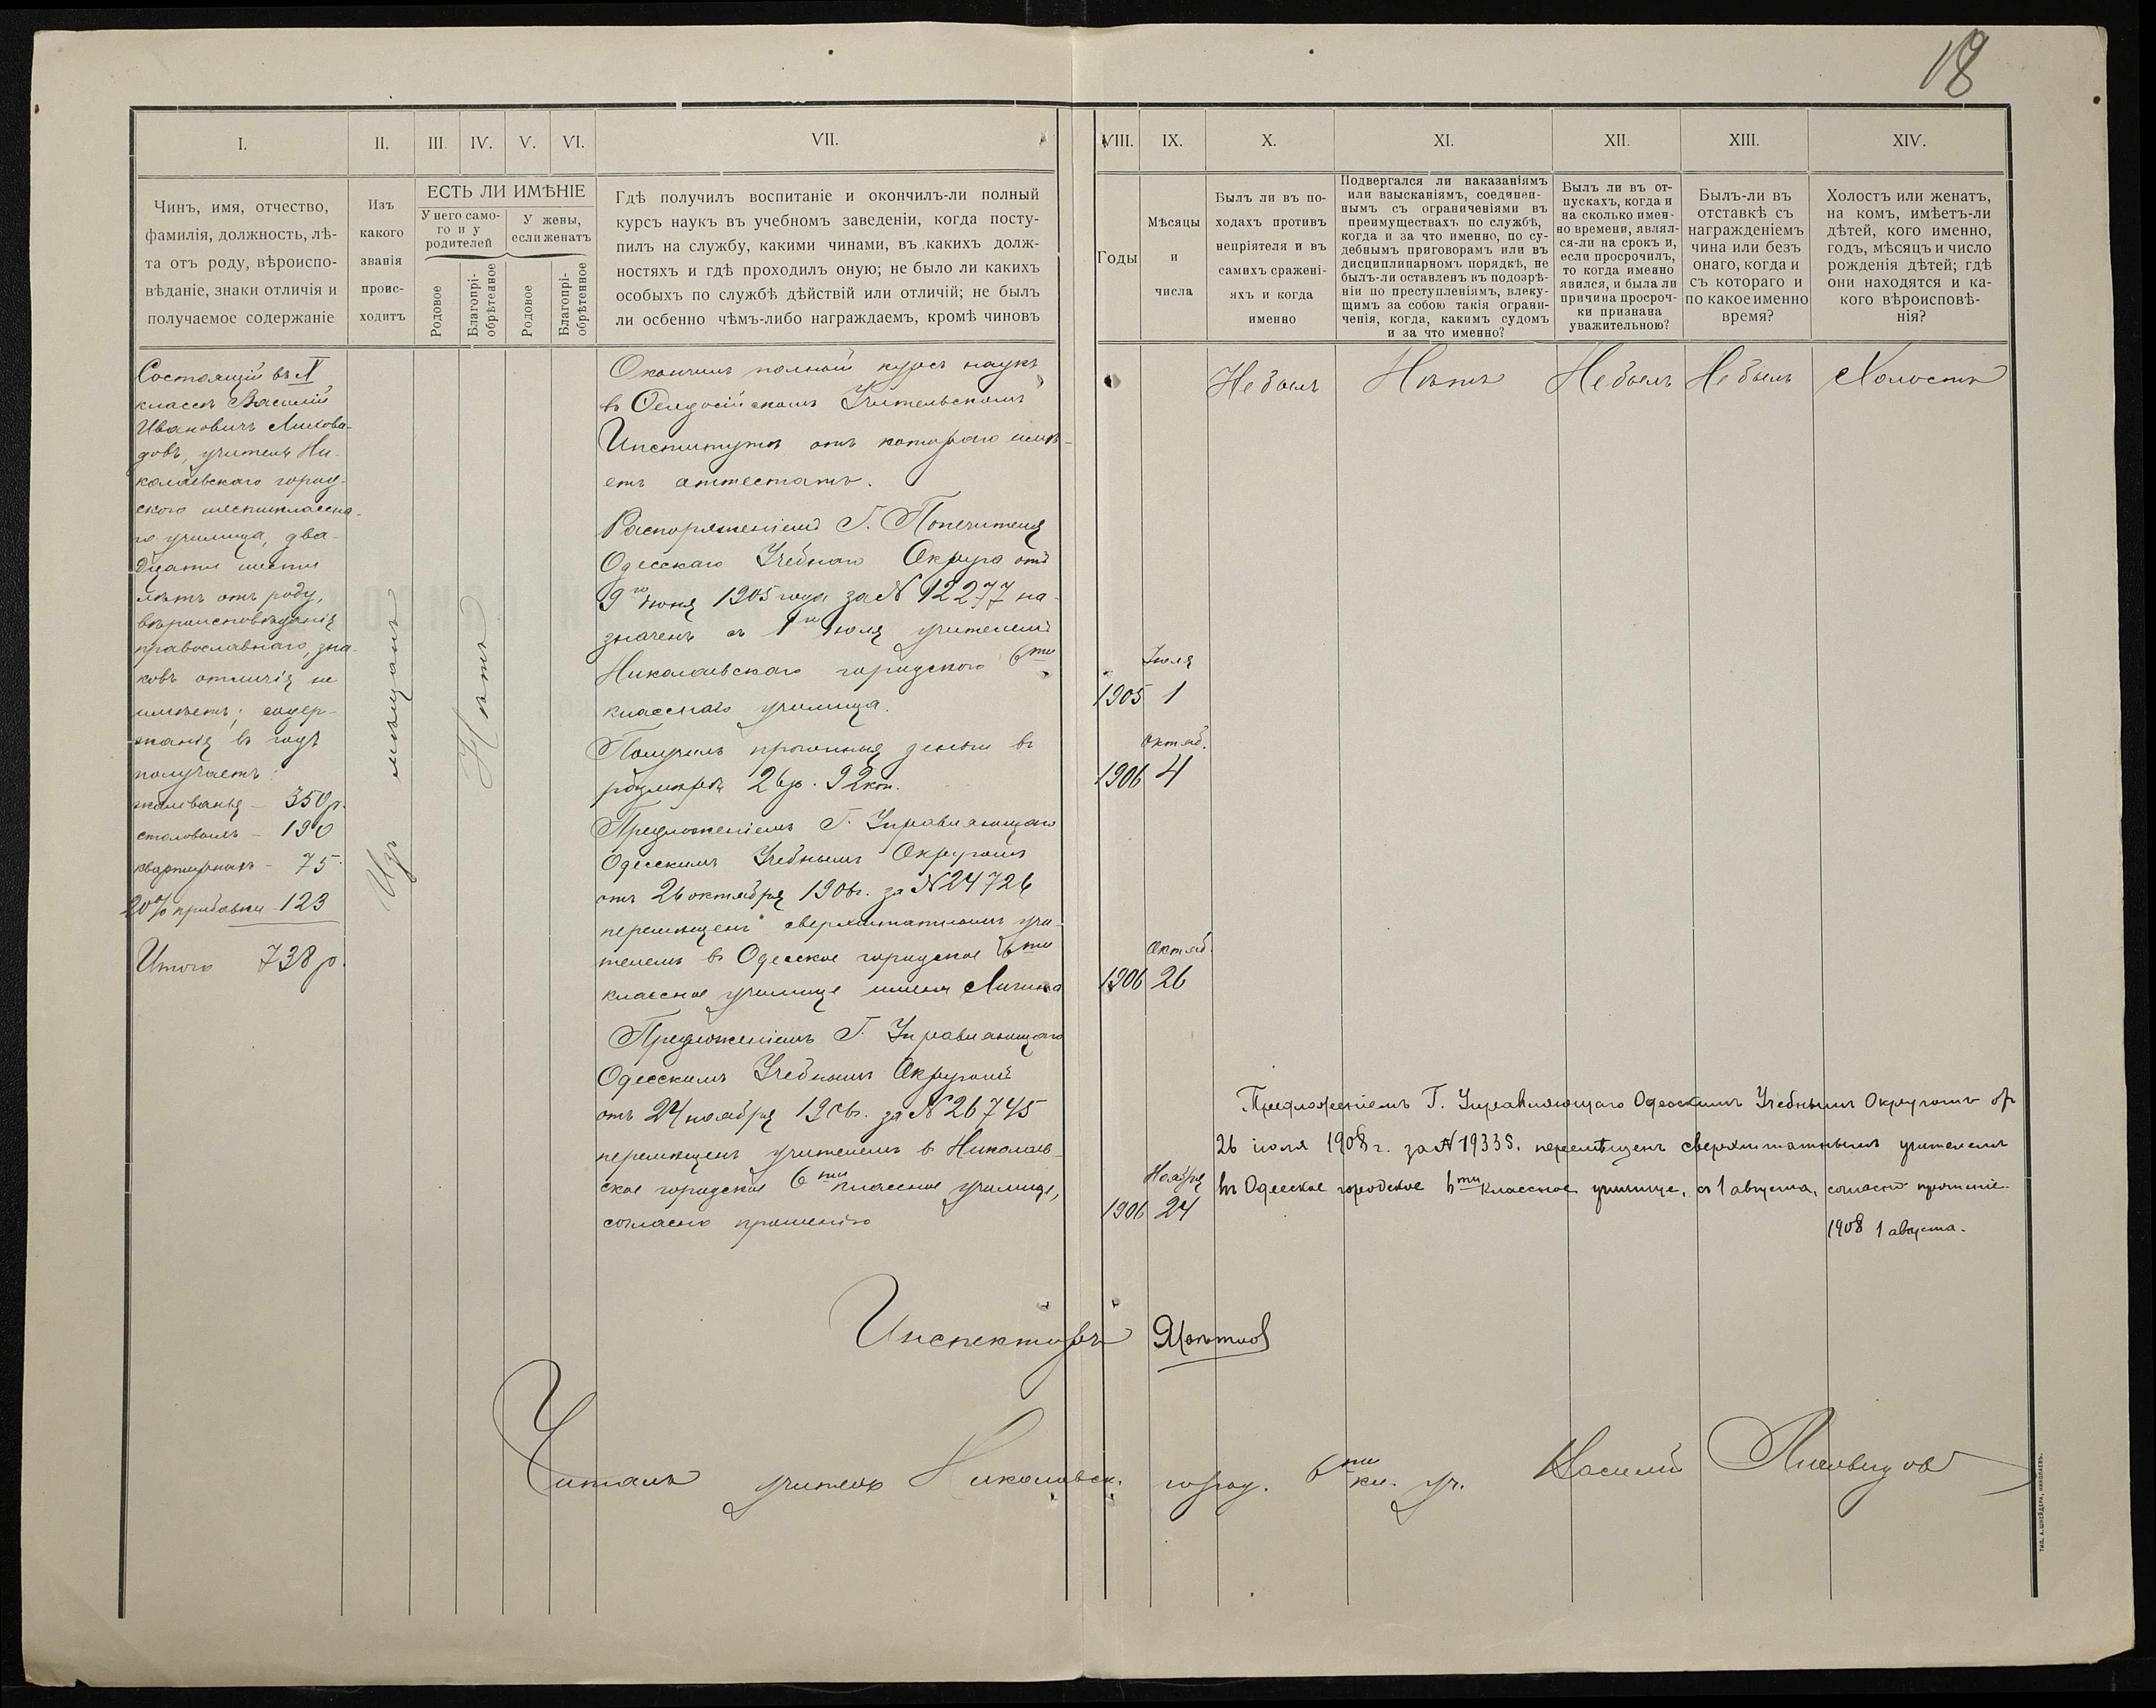 18
I.
II.
III.
IV.
V.
VI.
VII.
VIII.
IX.
X.
XI.
XII.
XIII.
XIV.
Чинъ, имя, отчество,
фамилія, должность, лѣ-
та отъ роду, вѣроиспо-
вѣданіе, знаки отличія и
получаемое содержаніе
Изъ
какого
званія
проис-
ходитъ
ЕСТЬ ЛИ ИМѢНІЕ
У него само-
го и у
родителей
У жены,
если женатъ
Родовое
Благопрі-
обрѣтенное
Родовое
Благопрі-
обрѣтенное
Гдѣ получилъ воспитаніе и окончилъ-ли полный
курсъ наукъ въ учебномъ заведеніи, когда посту-
пилъ на службу, какими чинами, въ какихъ долж-
ностяхъ и гдѣ проходилъ оную; не было ли какихъ
особыхъ по службѣ дѣйствій или отличій; не былъ
ли осбенно чѣмъ-либо награждаемъ, кромѣ чиновъ
Годы
Мѣсяцы
и
числа
Былъ ли въ по-
ходахъ противъ
непріятеля и въ
самихъ сражені-
яхъ и когда
именно
Подвергался ли наказаніямъ
или взысканіямъ, соединен-
нымъ съ ограниченіями въ
преимуществахъ по службѣ,
когда и за что именно, по су-
дебнымъ приговорамъ или въ
дисциплинарномъ порядкѣ, не
былъ-ли оставленъ въ подозрѣ-
ніи по преступленіямъ, влеку-
щимъ за собою такія ограни-
ченія, когда, какимъ судомъ
и за что именно?
Былъ ли въ от-
пускахъ, когда и
на сколько имен-
но времени, являл-
ся-ли на срокъ и,
если просрочилъ,
то когда именно
явился, и была ли
причина просроч-
ки признана
уважительною?
Былъ-ли въ
отставкѣ съ
награжденіемъ
чина или безъ
онаго, когда и
съ котораго и
по какое именно
время?
Холостъ или женатъ,
на комъ, имѣетъ-ли
дѣтей, кого именно,
годъ, мѣсяцъ и число
рожденія дѣтей; гдѣ
они находятся и ка-
кого вѣроисповѣ-
нія?
Состоящій въ X
классѣ Василій
Ивановичъ Лихови-
довъ, учитель Ни-
колаевскаго город-
ского шестиклассна-
го училища, два-
дцати шести
лѣтъ отъ роду,
вѣроисповѣданія
православнаго, зна-
ковъ отличія не
имѣетъ; содер-
жанія въ годъ
получаетъ:
жалованья – 350 р.
столовыхъ – 190
квартирныхъ – 75
20% прибавки – 123
Итого 738 р.
Изъ мѣщанъ
Нѣтъ
Окончилъ полный курсъ наукъ
въ Ѳеодосійскомъ Учительскомъ
Институтѣ, отъ котораго имѣ-
етъ аттестатъ.
Распоряженіемъ Г. Попечителя
Одесскаго Учебнаго Округа отъ
9го Іюня 1905 года за № 12277 на-
значенъ съ 1го Іюля учителемъ
Николаевскаго городского 6ти
класснаго училища.
Получилъ прогонныя деньги въ
размѣрѣ 26 р. 92 коп.
Предложеніемъ Г. Управляющаго
Одесскимъ Учебнымъ Округомъ
отъ 26 октября 1906 г. за № 24726
перемѣщенъ сверхштатнымъ учи-
телемъ въ Одесское городское 6ти
классное училище имени Лигина
Предложеніемъ Г. Управляющаго
Одесскимъ Учебнымъ Округомъ
отъ 24 ноября 1906 г. за № 26745
перемѣщенъ учителемъ въ Николаев-
ское городское 6ти классное училище,
согласно прошенію
Іюля
1905 1
Октяб.
1906 4
Октяб.
1906 26
Ноября
1906 24
Не былъ
Нѣтъ
Не былъ
Не былъ
Холостъ
Предложеніемъ Г. Управляющаго Одесскимъ Учебнымъ Округомъ от
26 іюля 1908 г. за № 19335. перемѣщенъ сверхштатнымъ учителемъ
въ Одесское городское 6ти классное училище, съ 1 августа, согласно прошенію.
1908 1 августа.
Инспекторъ
Читалъ учитель Николаевск. город. 6ти кл. уч. Василій Лиховидов
ТИП. А. ШНЕЙДЕРА, НИКОЛАЕВЪ.